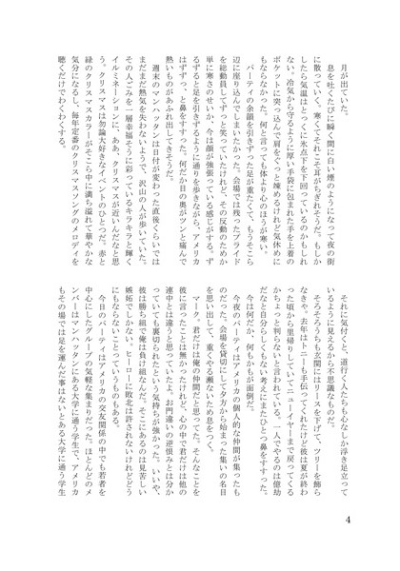 月が出ていた。
息を吐くたびに瞬く間に白い煙のようになって夜の街
に散っていく、寒くてそれこそ耳がちぎれそうだ。もしか
したら気温はとっくに氷点下を下回っているのかもしれ
ない。冷気から守るように厚い手袋に包まれた手を上着の
ポケットに突っ込んで肩をぐっと竦めるけれど気休めに
もならなかった。何と言っても体より心のほうが寒い。
パーティの余韻を引きずった足が重たくて、もうそこら
辺に座り込んでしまいたかった。会場では残ったプライド
を総動員してずっと笑っていたけれど、その反動のためか
単に寒さのせいか、今は頬が強張っている感じがする。ず
るずると足を引きずるように通りを歩きながら、アメリカ
はずずっ、と鼻をすすった。何だか目の奥がツンと痛んで
熱いものがあふれ出してきそうだ。
週末のマンハッタンは日付が変わった直後くらいでは
まだまだ熱気を失わないようで、沢山の人が歩いていた。
その人ごみを一層幸福そうに彩っているキラキラと輝く
イルミネーションに、ああ、クリスマスが近いんだなと思
う。クリスマスは勿論大好きなイベントのひとつだ。赤と
緑のクリスマスカラーがそこら中に満ち溢れて華やかな
気分になるし、毎年定番のクリスマスソングのメロディを
聴くだけでわくわくする。
それに気付くと、道行く人たちも心なしか浮き足立って
いるように見えるから不思議なものだ。
そろそろうちも玄関にはリースを下げて、ツリーを飾ら
なきゃ。去年はトニーも手伝ってくれたけど彼は夏が終わ
った頃から里帰りしていてニューイヤーまで戻ってくる
かちょっと判らないと言われている。一人でやるのは億劫
だなと自分らしくもない考えにまたひとつ鼻をすすった。
今は何だか、何もかもが面倒だ。
今夜のパーティはアメリカの個人的な仲間が集ったも
のだった。会場を貸切にして夕方から始まった集いの名目
を思い出して、重くやる瀬ないため息をつく。
マーク、君だけは俺の仲間だと思ってた。そんなことを
彼に言ったことは無かったけれど、心の中で君だけは他の
連中とは違うと思っていたよ。お門違いの逆恨みとは分か
っていても裏切られたという気持ちが強かった。いいや、
彼は勝ち組で俺は負け組なんだ。そこにあるのは見苦しい
嫉妬でしかない。ヒーローに敗北は許されないけれどどう
にもならないことっていうものもある。
今日のパーティはアメリカの交友関係の中でも若者を
中心にしたグループの気軽な集まりだった。ほとんどのメ
ンバーはマンハッタンにある大学に通う学生で、アメリカ
もその場では足を運んだ事はないとある大学に通う学生
4